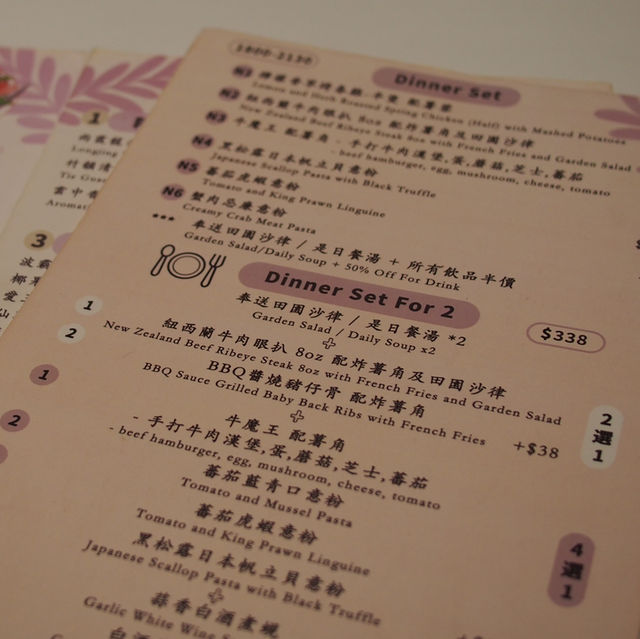 1800-2130
Dinner Set
N1
Lemon and Herb Roasted Spring Chicken (Half) with Mashed Potatoes
N2 紐西蘭牛肉眼扒 8oz 配炸薯角及田園沙律
New Zealand Beef Ribeye Steak 8oz with French Fries and Garden Salad
N3 牛魔王 配薯角 - 手打牛肉漢堡,蛋,蘑菇,芝士,蕃茄
- beef hamburger, egg, mushroom, cheese, tomato
N4 黑松露日本帆立貝意粉
Japanese Scallop Pasta with Black Truffle
N5 蕃茄虎蝦意粉
Tomato and King Prawn Linguine
N6 蟹肉忌廉意粉
Creamy Crab Meat Pasta
*** 奉送田園沙律 / 是日餐湯 + 所有飲品半價
Garden Salad/Daily Soup + 50% Off For Drink
Dinner Set For 2
$338
奉送田園沙律 / 是日餐湯 *2
Garden Salad / Daily Soup x2
+
1 紐西蘭牛肉眼扒 8oz 配炸薯角及田園沙律
New Zealand Beef Ribeye Steak 8oz with French Fries and Garden Salad
2 BBQ醬燒豬仔骨 配炸薯角
BBQ Sauce Grilled Baby Back Ribs with French Fries +$38
2選1
+
1 牛魔王 配薯角
- 手打牛肉漢堡,蛋,蘑菇,芝士,蕃茄
- beef hamburger, egg, mushroom, cheese, tomato
2 蕃茄藍青口意粉
Tomato and Mussel Pasta
蕃茄虎蝦意粉
Tomato and King Prawn Linguine
黑松露日本帆立貝意粉
Japanese Scallop Pasta with Black Truffle
4選1
+
蒜香白酒煮蜆
Garlic White Wine
白酒
1
3